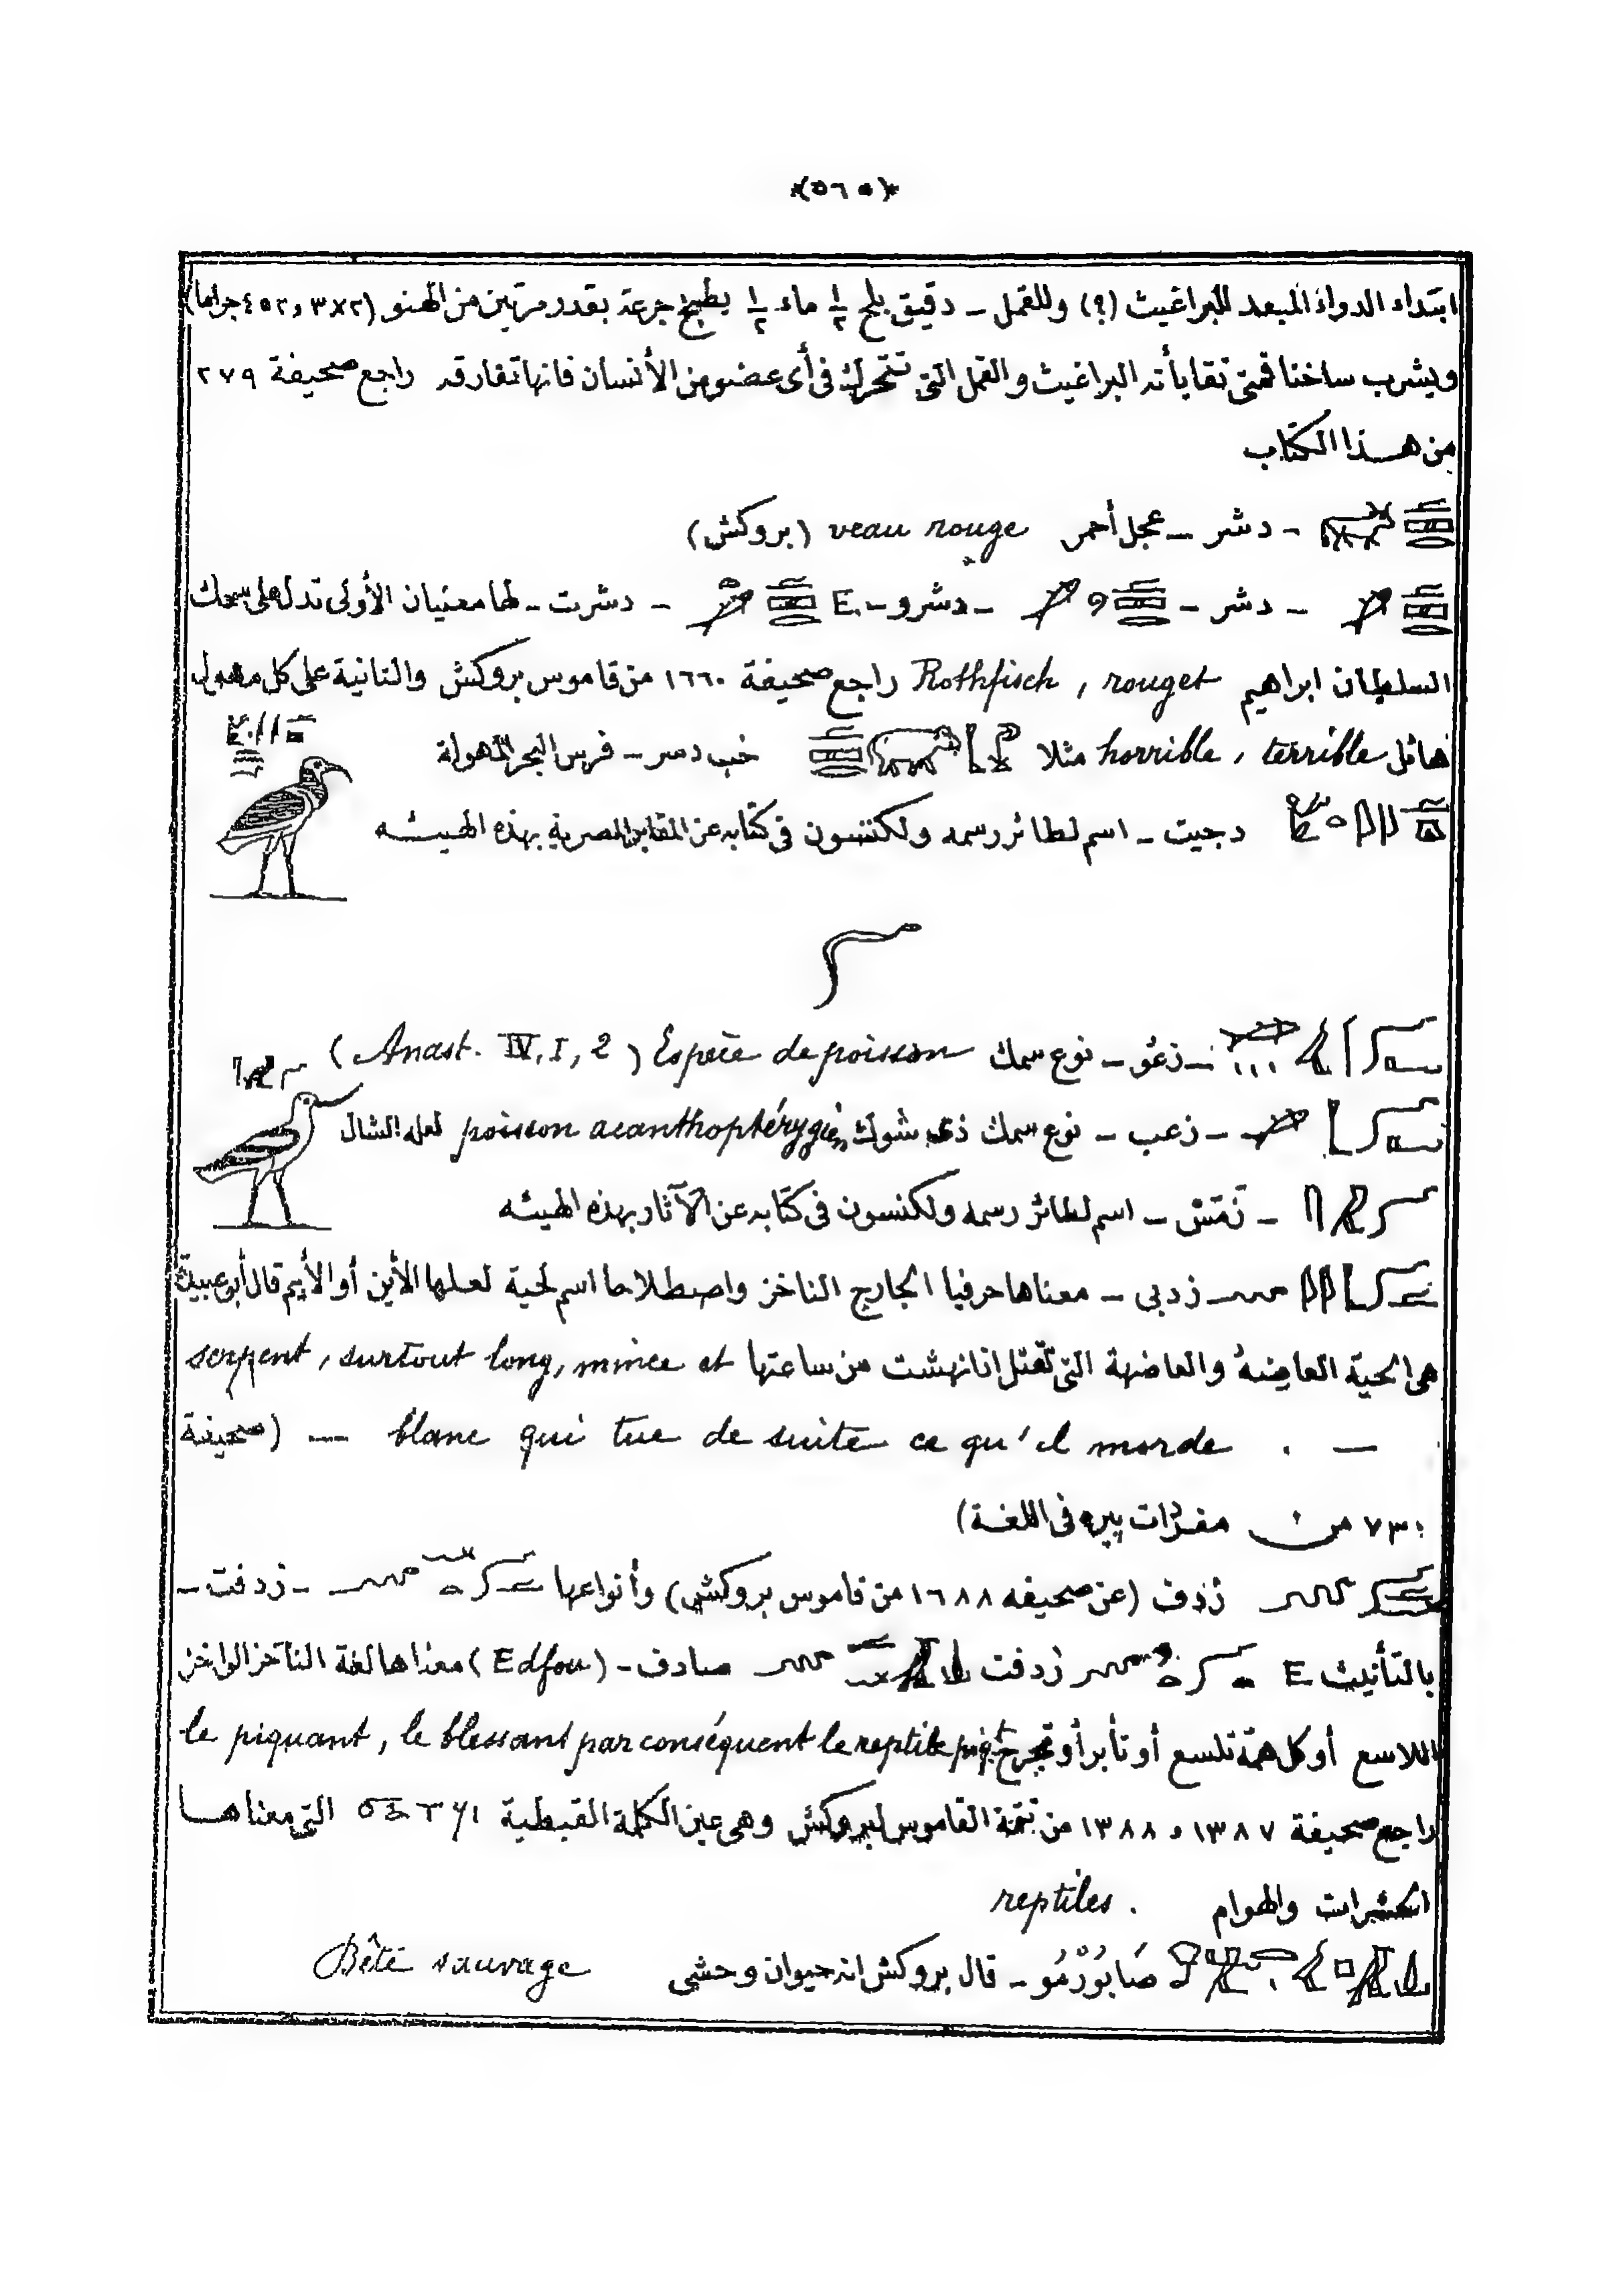 *(٥٦٥)*
ابتداء الدواء المبعد للبراغيث (؟) وللقمل - دقيق بلح ½ ماء ½ يطبخ جرعة بقدر مرتين من الهنو
ويشرب ساخنا فمتى تقايأته البراغيث والقمل التى تتحرك فى أى عضو من الأنسان فانها تفارقه راجع صحيفة ٢٧٩
من هذا الكتاب
- دشر - عجل أحمر veau rouge (بروكش)
- دشر - - دشرو - E. - دشرت - لها معنيان الأولى تدل على سمك
السلطان ابراهيم Rothfisch, rouget راجع صحيفة ١٦٦٠ من قاموس بروكش والثانية على كل مهول
هائل horrible, terrible مثلا خب دسر - فرس البحر المهولة
دجيت - اسم لطائر رسمه ولكنسون فى كتابه عن المقابر المصرية بهذه الهيئه
- زعو - نوع سمك Espèce de poisson (Anast. IV, I, 2)
- زعب - نوع سمك ذى شوك poisson acanthoptérygien لعله الشال
- نمتش - اسم لطائر رسمه ولكنسون فى كتابه عن الآثار بهذه الهيئه
زدبى - معناها حرفيا الجارح الناخز واصطلاحا اسم لحية لعلها الأين أو الأيم قال أبو عبيدة
هى الحية العاضة والعاضهة التى تقتل اذا نهشت من ساعتها serpent, surtout long, mince et
blanc qui tue de suite ce qu'il morde — (صحيفة
٧٣١ من مفردات بيره فى اللغة)
زدف (عن صحيفه ١٦٨٨ من قاموس بروكش) وأنواعها - زدفت -
بالتأنيث E زدفت صادف - (Edfou) معناها لغة الناخز الواخز
اللاسع أو كل همة تلسع أو تأبر أو تجرح le piquant, le blessant par conséquent le reptile
راجع صحيفة ١٣٨٧ و ١٣٨٨ من تتمة القاموس لبروكش وهى عين الكلمة القبطية التى معناها
الحشرات والهوام reptiles.
صَابُورْمُو - قال بروكش انه حيوان وحشى Bête sauvage